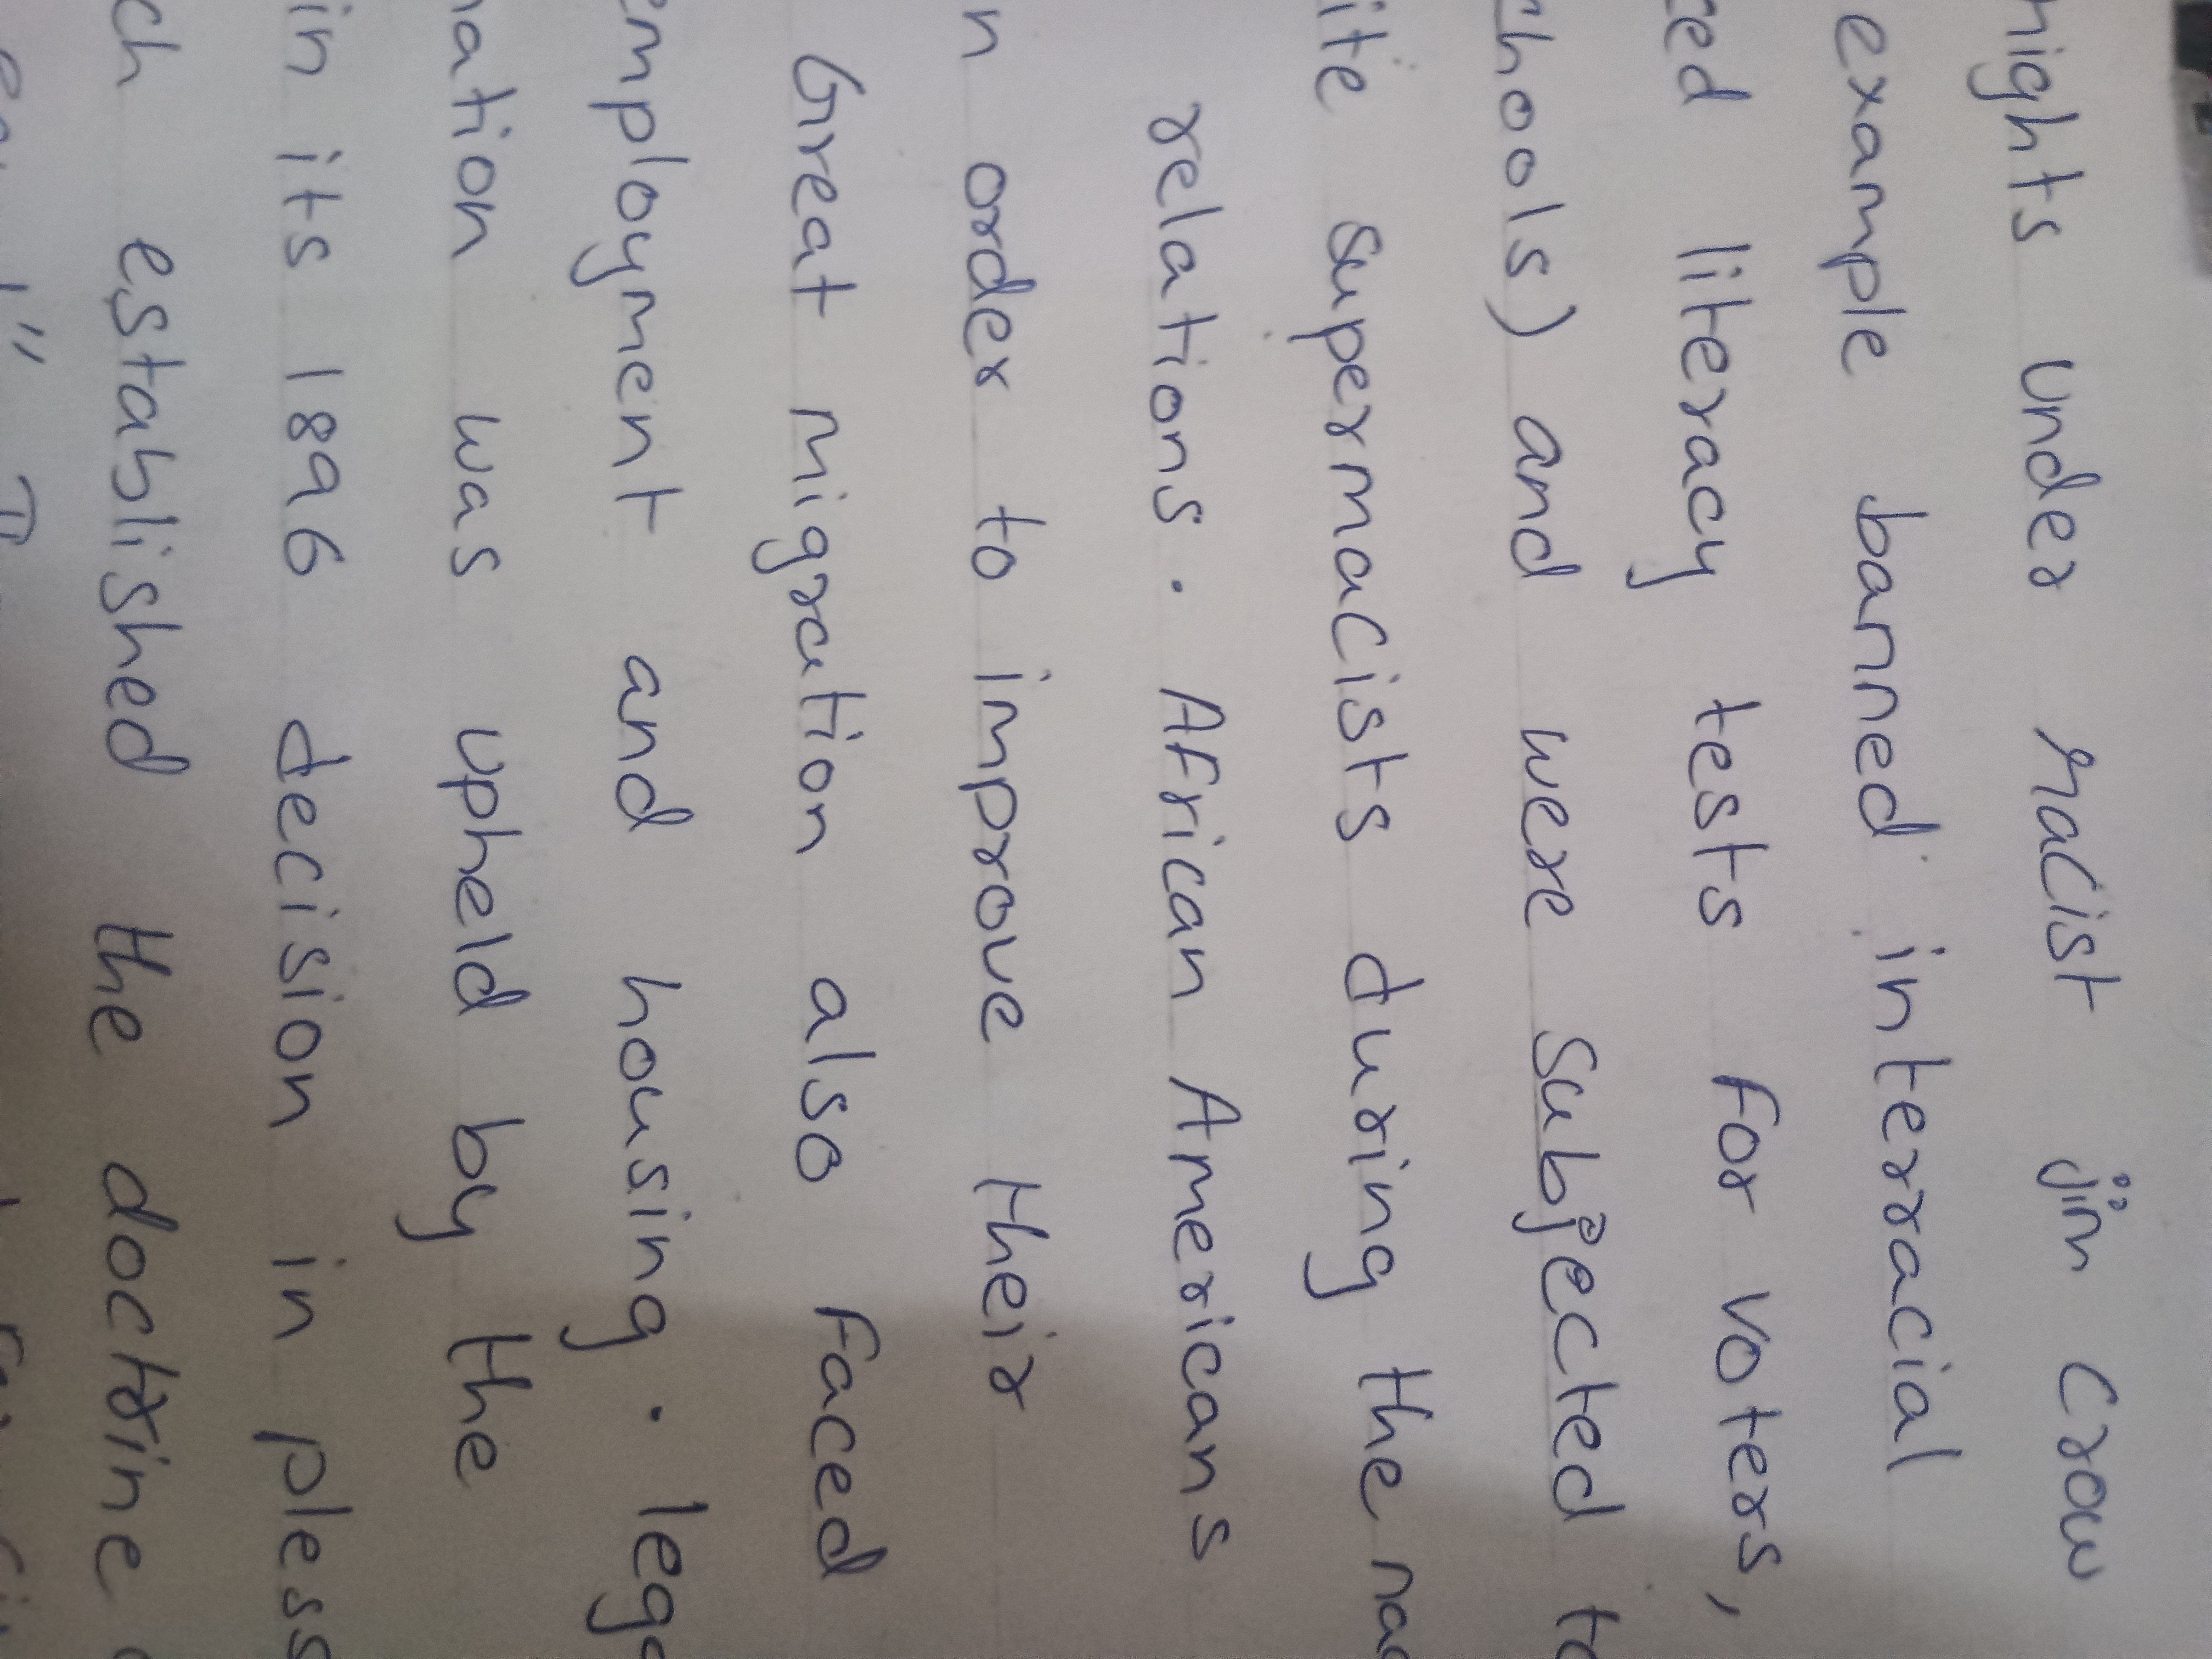 rights under racist jim crow
example banned interracial
ced literacy tests for voters,
chools) and were subjected to
ite supermacists during the na
relations. African Americans
n order to improve their
Great migration also faced
employment and housing. lega
nation was upheld by the
in its 1896 decision in pless
ch established the doctrine